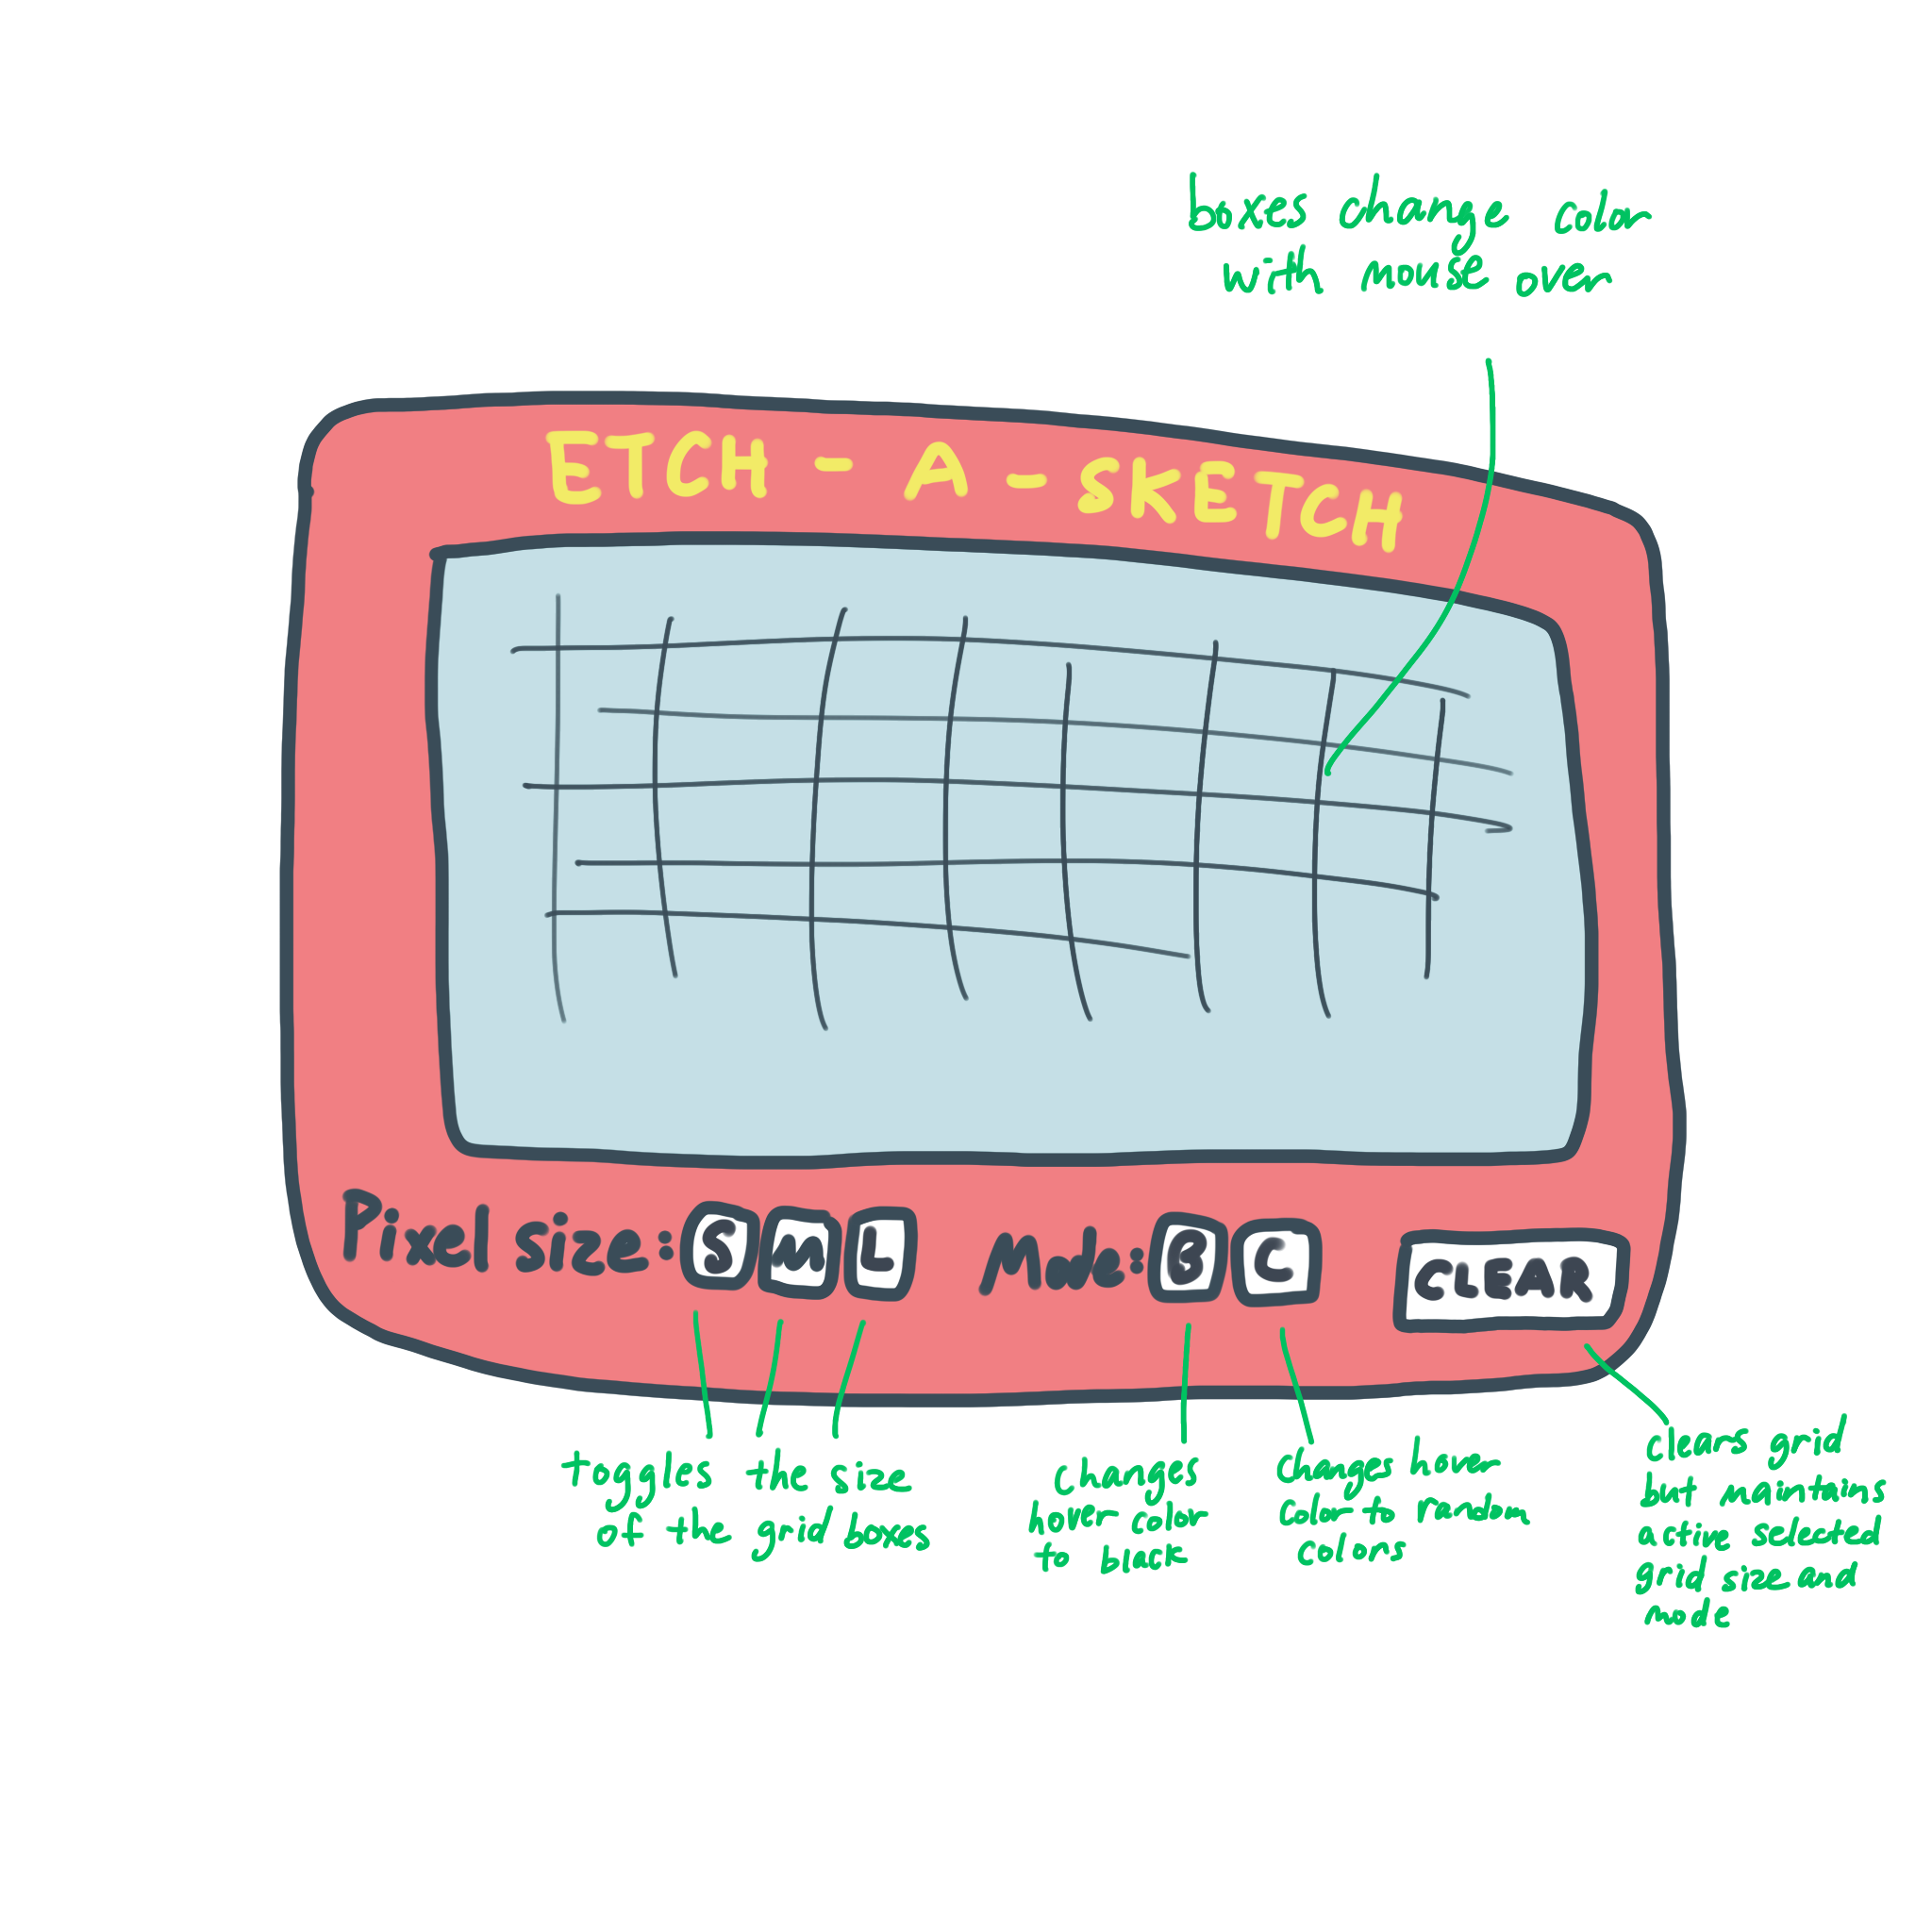 boxes change color
with mouse over
ETCH - A - SKETCH
Pixel size: S M L Mode: B C CLEAR
toggles the size
of the grid boxes
changes
hover color
to black
changes hover
color to random
colors
clears grid
but maintains
active selected
grid size and
mode